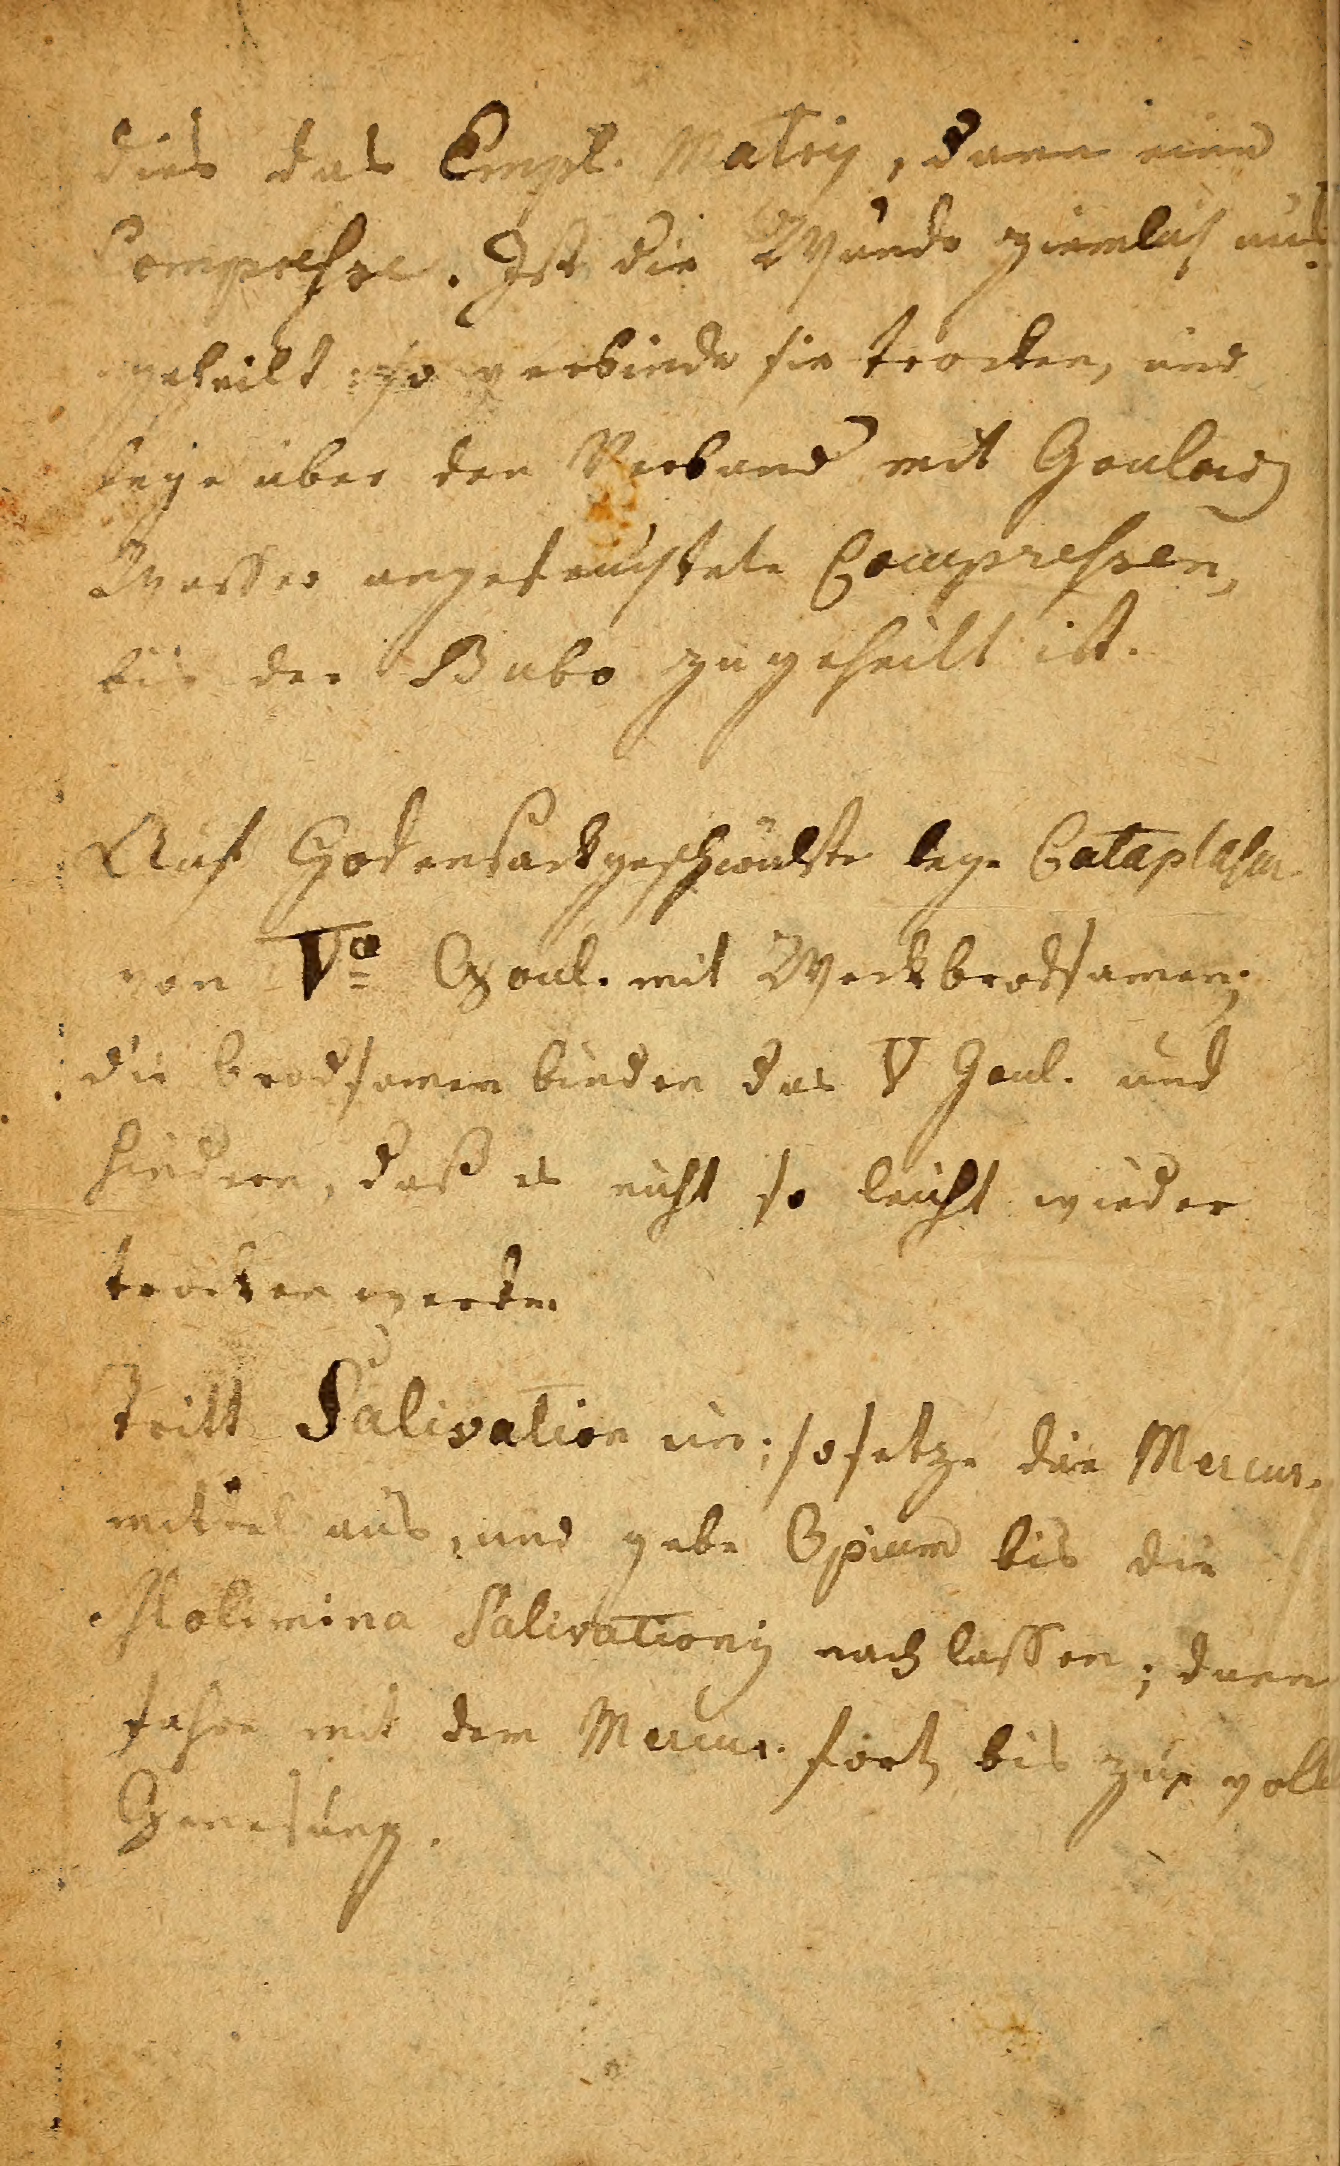 dies das Empl. Matris, dann eine
Compresse. Ist die Wunde ziemlich aus
geheilt; so verbinde sie trocken, und
lege über den Verband mit Goulard
Wasser angefeuchtete Compressen,
bis der Bubo zugeheilt ist.
Auf Hodensackgeschwülste lege Cataplasm.
von Va Goul. mit Weckbrodsamen;
die brodsamen binden das V Goul. und
hindern, daß es nicht so leicht wieder
trocken werde.
Tritt Salivation ein; so setze die Mercur.
mittel aus, und gebe Opium bis die
Molimina Salivationis nachlassen; dann
fahre mit dem Mercur. fort, bis zur voll
Genesung.